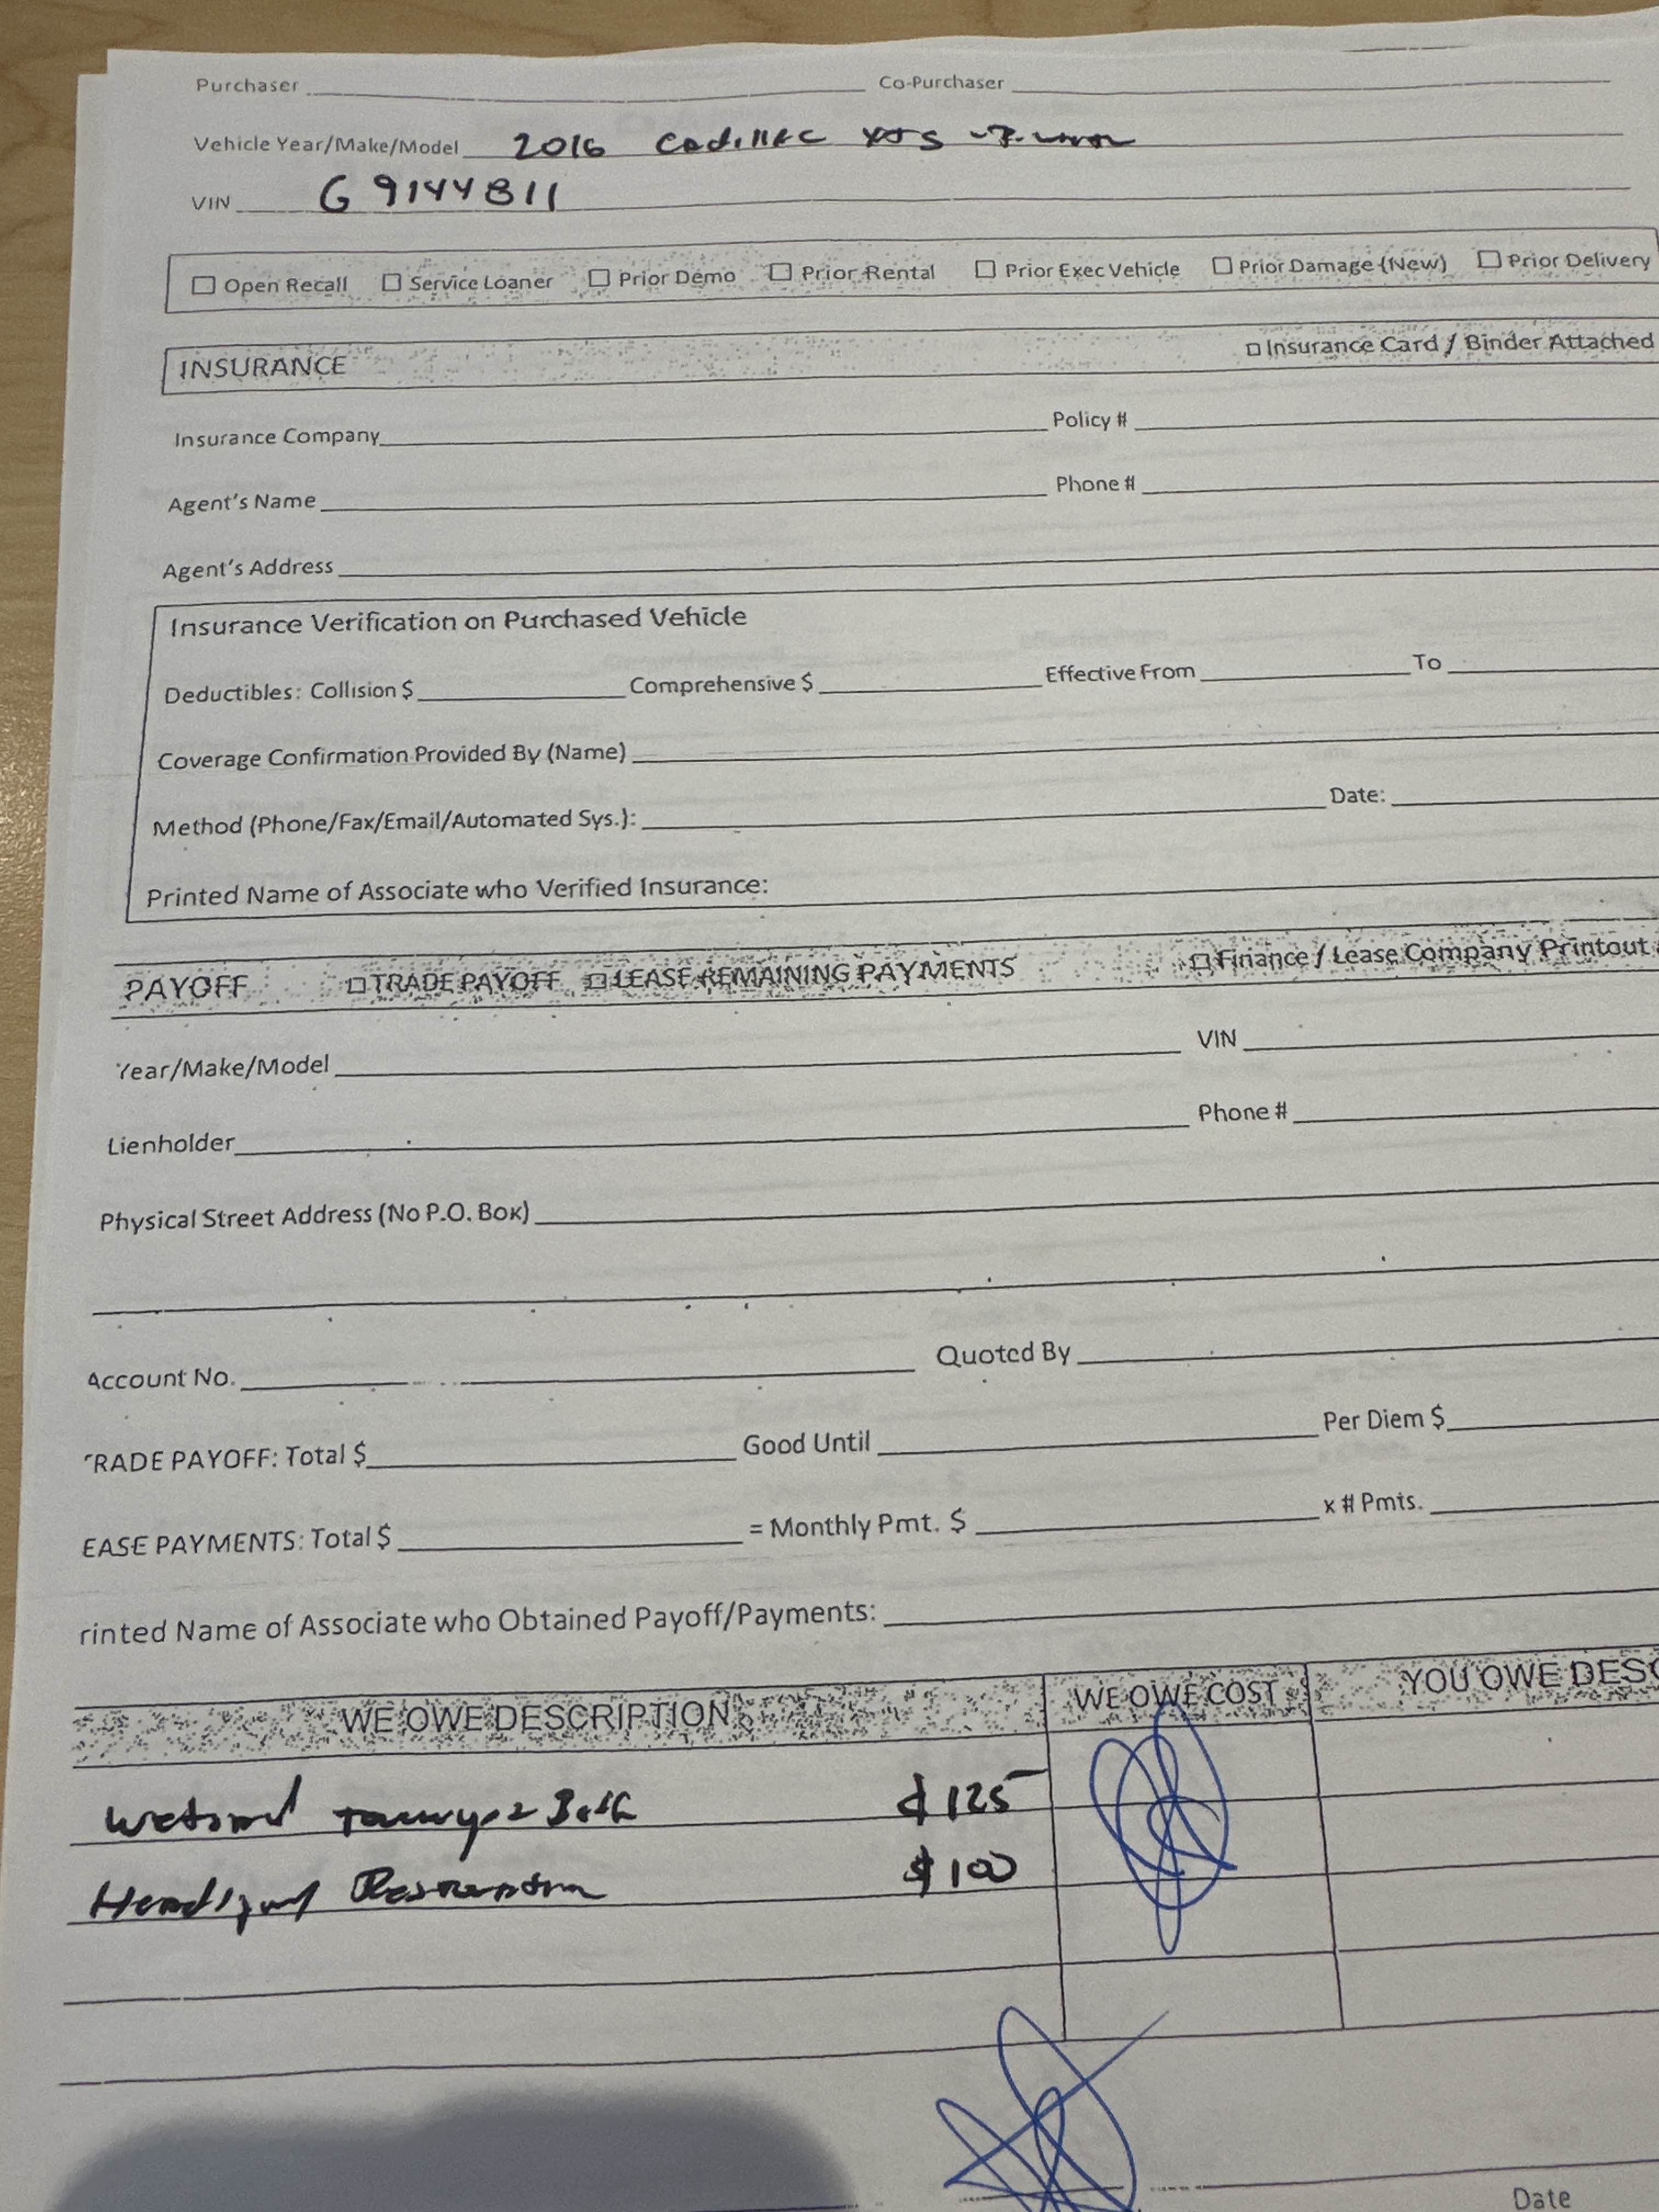 Purchaser Co-Purchaser
Vehicle Year/Make/Model 2016 Cadillac XTS
VIN G9144811
☐ Open Recall ☐ Service Loaner ☐ Prior Demo ☐ Prior Rental ☐ Prior Exec Vehicle ☐ Prior Damage (New) ☐ Prior Delivery
INSURANCE ☐ Insurance Card / Binder Attached
Insurance Company Policy #
Agent's Name Phone #
Agent's Address
Insurance Verification on Purchased Vehicle
Deductibles: Collision $ Comprehensive $ Effective From To
Coverage Confirmation Provided By (Name)
Method (Phone/Fax/Email/Automated Sys.): Date:
Printed Name of Associate who Verified Insurance:
PAYOFF ☐ TRADE PAYOFF ☐ LEASE REMAINING PAYMENTS ☐ Finance / Lease Company Printout
Year/Make/Model VIN
Lienholder Phone #
Physical Street Address (No P.O. Box)
Account No. Quoted By
RADE PAYOFF: Total $ Good Until Per Diem $
EASE PAYMENTS: Total $ = Monthly Pmt. $ x # Pmts.
rinted Name of Associate who Obtained Payoff/Payments:
WE OWE DESCRIPTION WE OWE COST YOU OWE DESC
$125
Headlight Restoration $100
Date